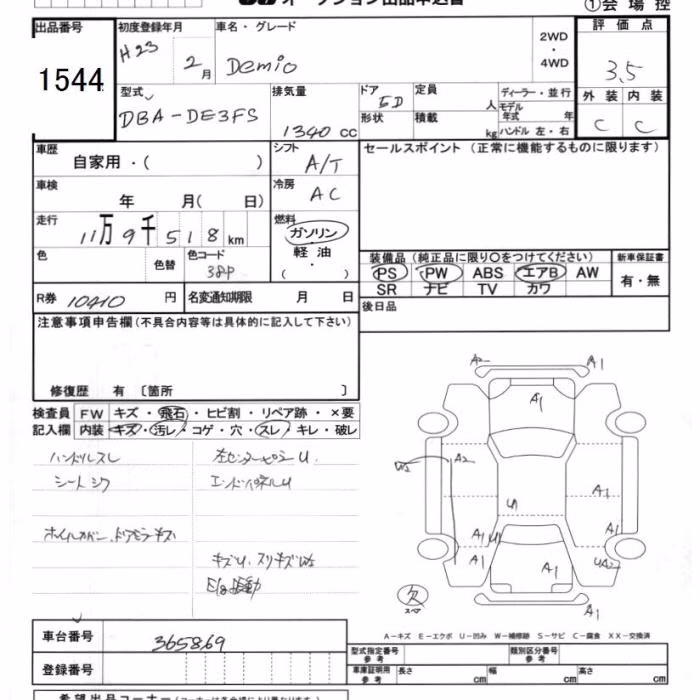 オークション出品申込書
①会場控
出品番号
1544
初度登録年月
H23 2月
車名・グレード
Demio
2WD
・
4WD
評価点
3.5
外装 内装
C C
型式
DBA-DE3FS
排気量
1340 cc
ドア 5D
形状
定員 人
積載 kg
ディーラー・並行
モデル年式 年
ハンドル 左・右
車歴
自家用・( )
シフト
A/T
セールスポイント (正常に機能するものに限ります)
車検
年 月( 日)
冷房
AC
走行
11万9千518km
燃料
ガソリン
軽油
( ・ )
色
色替
色コード
38P
装備品 (純正品に限り○をつけてください)
PS PW ABS エアB AW
SR ナビ TV カワ
新車保証書
有・無
R券 10410 円
名変通知期限 月 日
後日品
注意事項申告欄 (不具合内容等は具体的に記入して下さい)
修復歴 有 〔箇所 〕
検査員記入欄
FW キズ・飛石・ヒビ割・リペア跡・×要
内装 キズ・汚レ・コゲ・穴・スレ・キレ・破レ
ハンドルスレ
シートシワ
ホイルカバー、ドアミラーキズ
左センターピラーU.
エンドパネルU
キズU.スリキズW2
A2 A1
A1
W2 A2
A1
U1
A1 U1 A1
A1 A1 UA2
A1
欠
スペア
A-キズ E-エクボ U-凹み W-補修跡 S-サビ C-腐食 XX-交換済
車台番号
365869
登録番号
型式指定番号 参考
類別区分番号 参考
車庫証明用 参考
長さ cm 幅 cm 高さ cm
希望出品コーナー